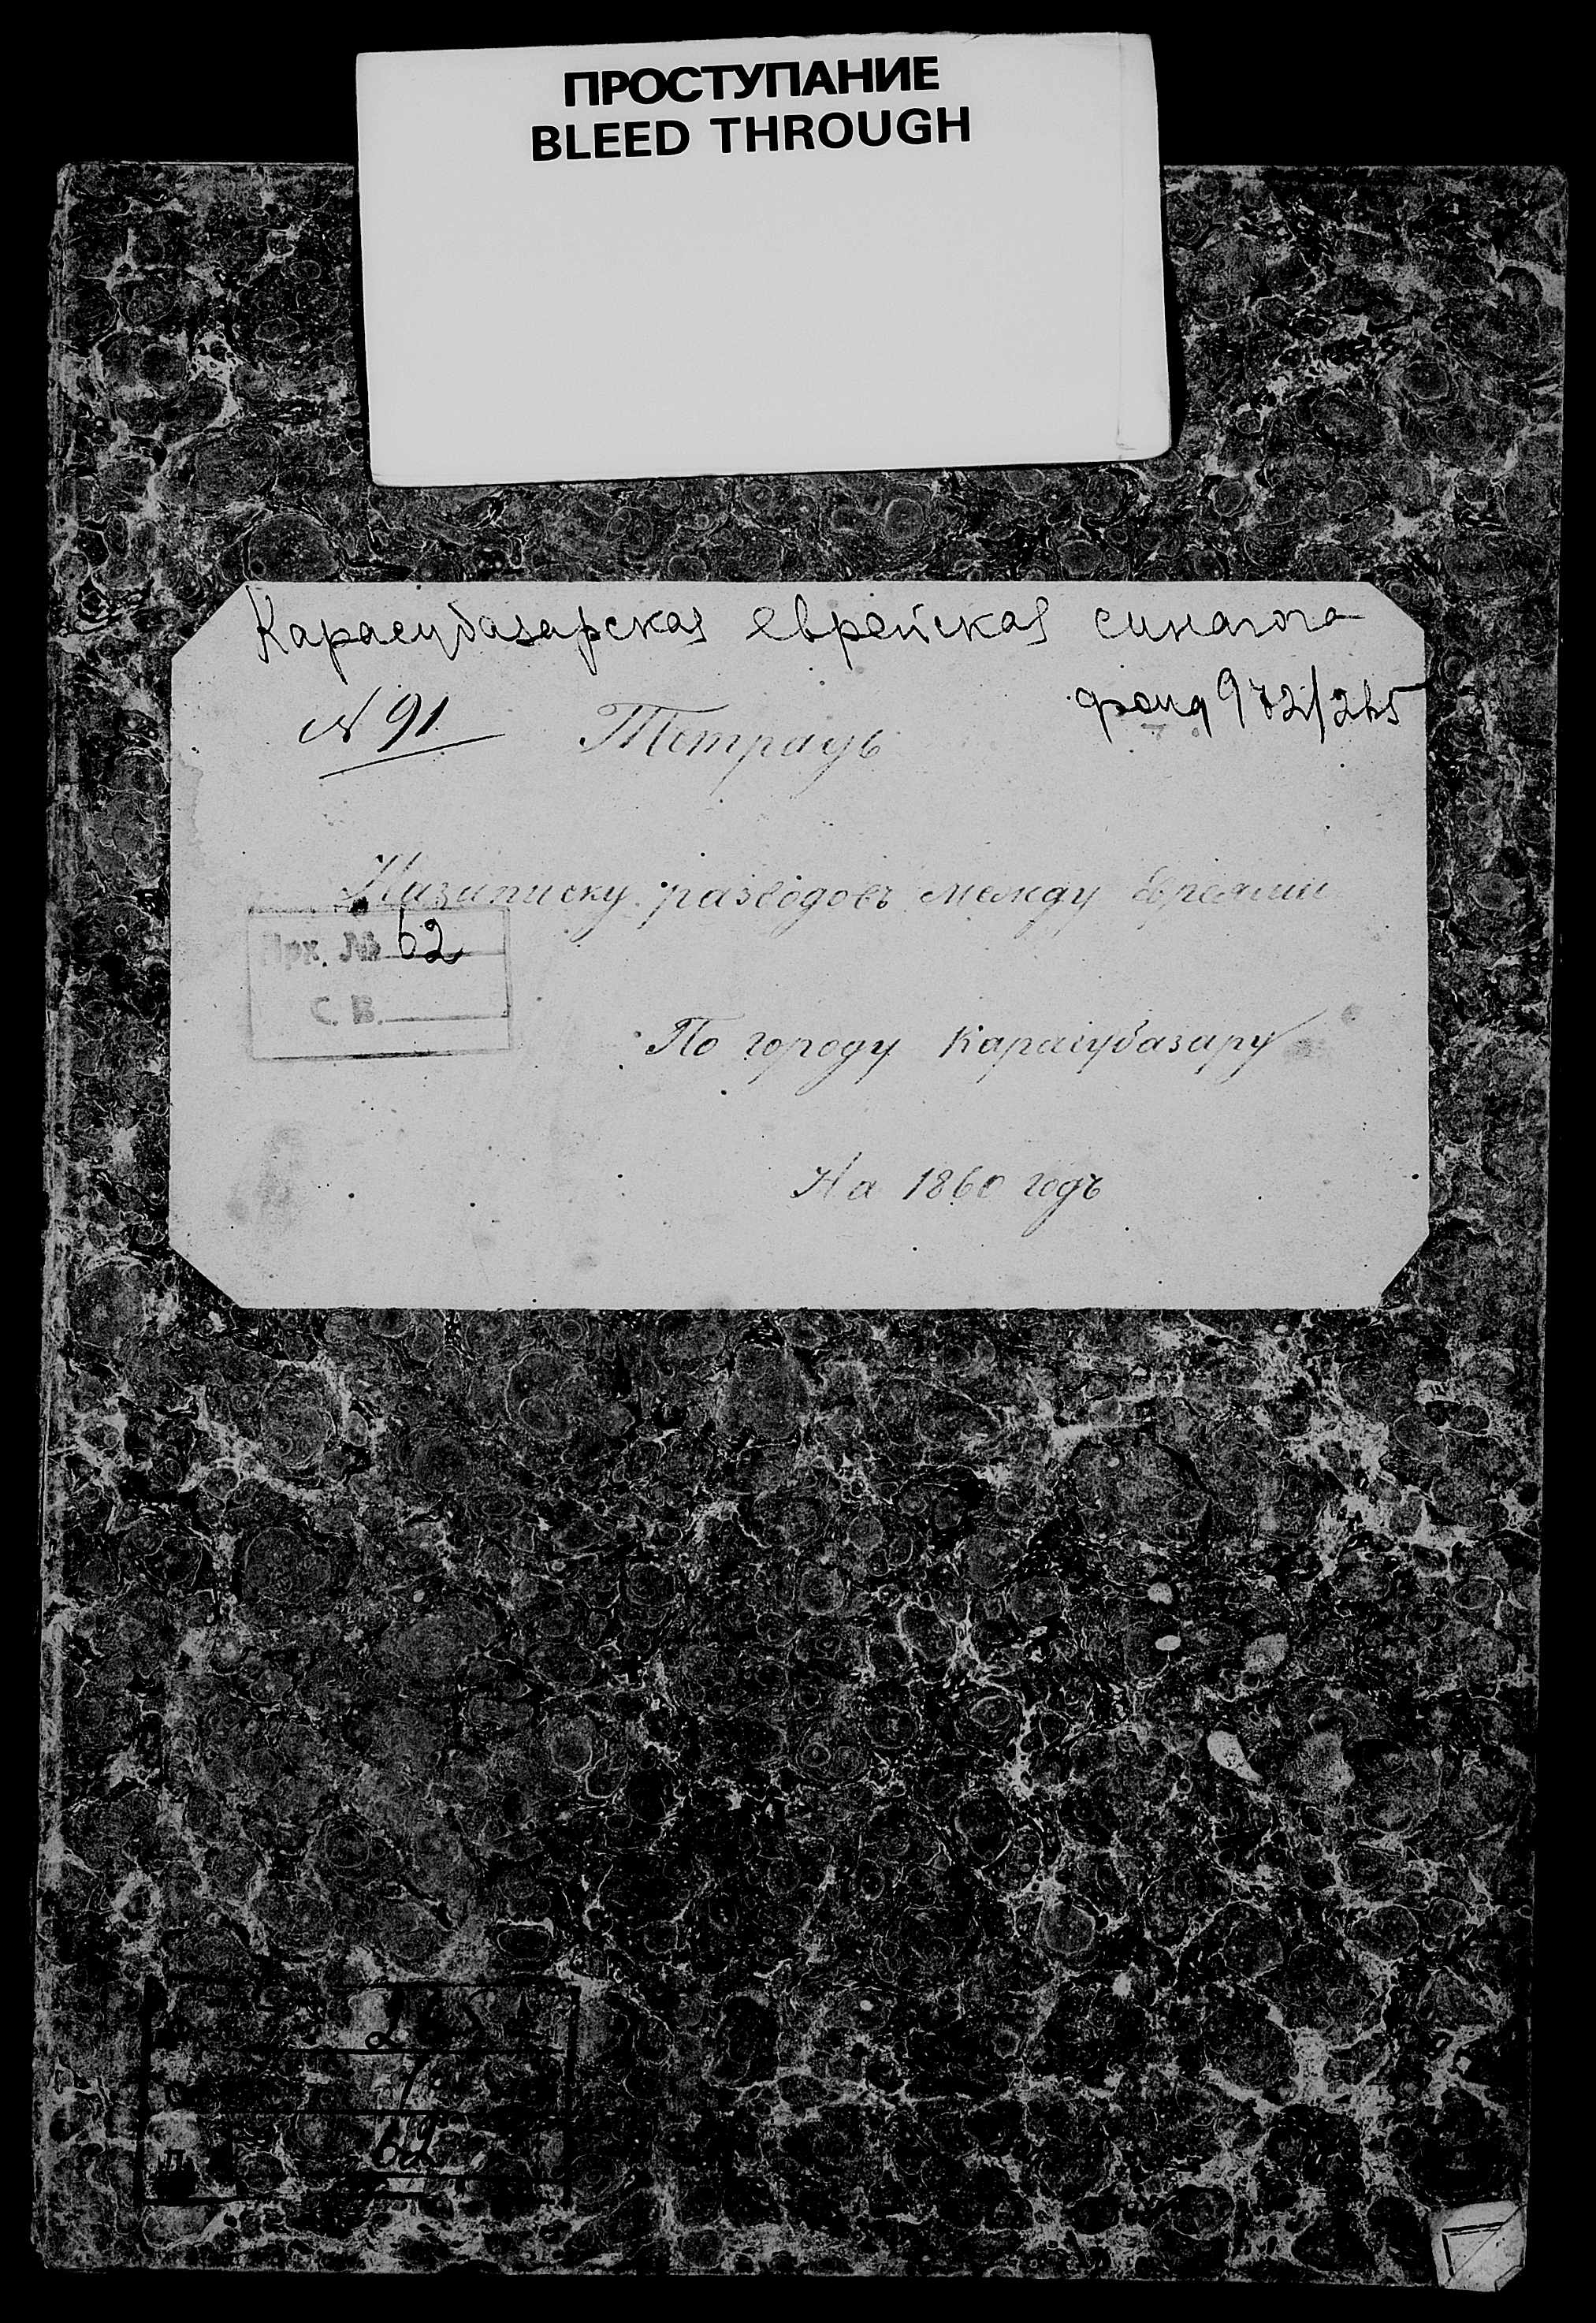 ПРОСТУПАНИЕ
BLEED THROUGH
Карасубазарская еврейская синагога
фонд 972/265
№ 91
Тетрадь
На записку разводовъ между Евреями
Арх. № 62
С. В.
По городу Карасубазару
На 1860 годъ
265
62